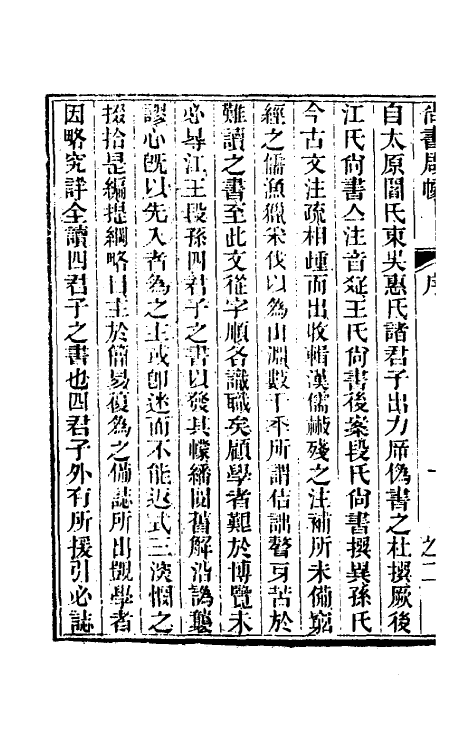 尚書启幪
序
一
之二
自太原閻氏東吳惠氏諸君子出力𢈪偽書之杜撰厥後
江氏尚書亼注音疏王氏尚書後案段氏尚書撰異孫氏
今古文注疏相歱而出收輯漢儒敝殘之注補所未備竆
經之儒漁獵采伐以為山淵數千秊所謂佶詘聱牙苦於
難讀之書至此文從字順各識職矣顧學者艱於博覽未
必㝵江王段孫四君子之書以發其幪繙閱舊解沿譌襲
謬心旣以先入者為之主或卽迷而不能返式三淡憫之
掇拾是編提綱略目主於簡易復為之備誌所出覬學者
因略究詳全讀四君子之書也四君子外有所援引必誌